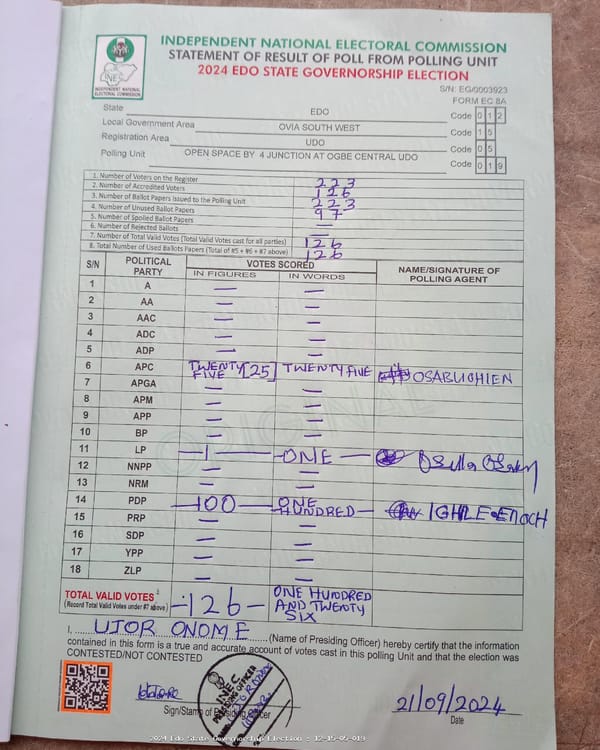 INDEPENDENT NATIONAL ELECTORAL COMMISSION
STATEMENT OF RESULT OF POLL FROM POLLING UNIT
2024 EDO STATE GOVERNORSHIP ELECTION
INEC
INDEPENDENT NATIONAL
ELECTORAL COMMISSION
S/N: EG/0003923
FORM EC 8A
State EDO Code 0 1 2
Local Government Area OVIA SOUTH WEST Code 1 5
Registration Area UDO Code 0 5
Polling Unit OPEN SPACE BY 4 JUNCTION AT OGBE CENTRAL UDO Code 0 1 9
1. Number of Voters on the Register 223
2. Number of Accredited Voters 126
3. Number of Ballot Papers Issued to the Polling Unit 223
4. Number of Unused Ballot Papers 97
5. Number of Spoiled Ballot Papers —
6. Number of Rejected Ballots —
7. Number of Total Valid Votes (Total Valid Votes cast for all parties) 126
8. Total Number of Used Ballots Papers (Total of #5 + #6 + #7 above) 126
S/N POLITICAL PARTY VOTES SCORED NAME/SIGNATURE OF POLLING AGENT
IN FIGURES IN WORDS
1 A — —
2 AA — —
3 AAC — —
4 ADC — —
5 ADP — —
6 APC TWENTY FIVE [25] TWENTY FIVE OSABUOHIEN
7 APGA — —
8 APM — —
9 APP — —
10 BP — —
11 LP — 1 — — ONE —
12 NNPP — —
13 NRM — —
14 PDP — 100 — ONE HUNDRED — IGHILE ENOCH
15 PRP — —
16 SDP — —
17 YPP — —
18 ZLP — —
TOTAL VALID VOTES — 126 — ONE HUNDRED AND TWENTY SIX
(Record Total Valid Votes under #7 above)
I, UJOR ONOME (Name of Presiding Officer) hereby certify that the information
contained in this form is a true and accurate account of votes cast in this polling Unit and that the election was
CONTESTED/NOT CONTESTED
INEC
Sign/Stamp of Presiding Officer
21/09/2024
Date
2024 Edo State Governorship Election - 12-15-05-019